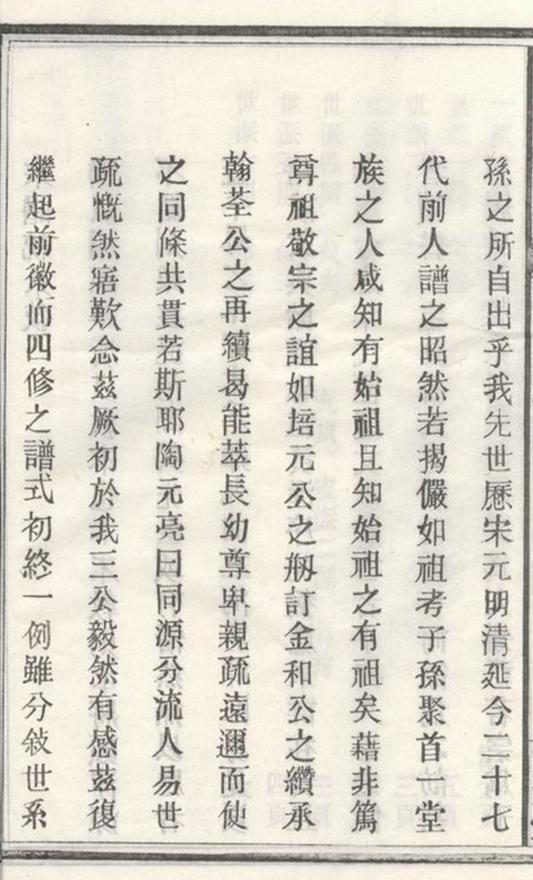 孫之所自出乎我先世歷宋元明清延今二十七
代前人譜之昭然若揭儼如祖考子孫聚首一堂
族之人咸知有始祖且知始祖之有祖矣藉非篤
尊祖敬宗之誼如培元公之刱訂金和公之纘承
翰荃公之再續曷能萃長幼尊卑親疏遠邇而使
之同條共貫若斯耶陶元亮曰同源分流人易世
疏慨然寤歎念茲厥初於我三公毅然有感茲復
繼起前徽而四修之譜式初終一例雖分敍世系